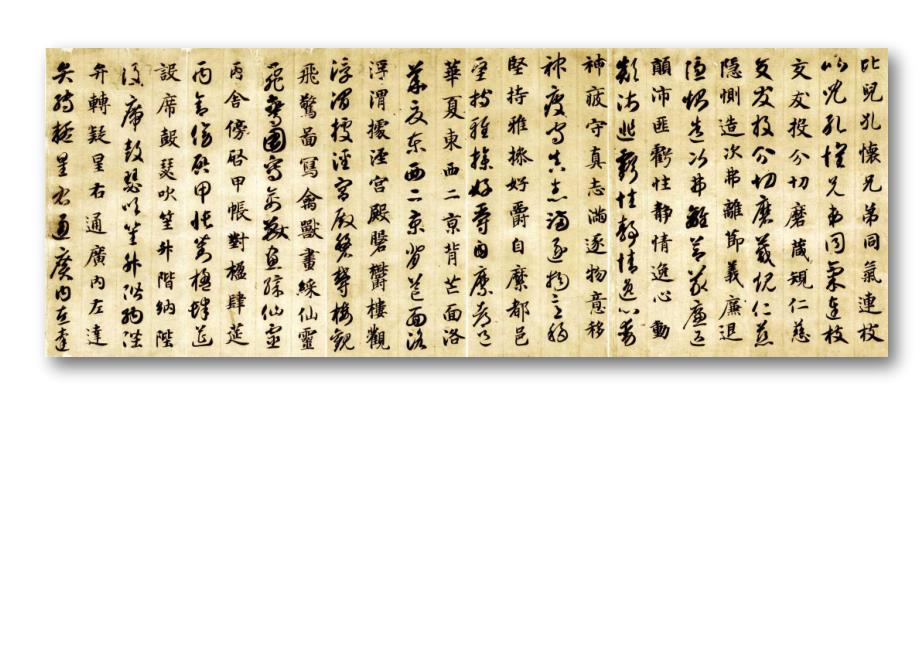 比兒孔懷兄弟同氣連枝
比兒孔懷兄弟同氣連枝
交友投分切磨箴規仁慈
交友投分切磨箴規仁慈
隱惻造次弗離節義廉退
隱惻造次弗離節義廉退
顛沛匪虧性靜情逸心動
顛沛匪虧性靜情逸心動
神疲守真志滿逐物意移
神疲守真志滿逐物意移
堅持雅操好爵自縻都邑
堅持雅操好爵自縻都邑
華夏東西二京背芒面洛
華夏東西二京背芒面洛
浮渭據涇宮殿盤鬱樓觀
浮渭據涇宮殿盤鬱樓觀
飛驚圖寫禽獸畫綵仙靈
飛驚圖寫禽獸畫綵仙靈
丙舍傍啓甲帳對楹肆筵
丙舍傍啓甲帳對楹肆筵
設席鼓瑟吹笙升階納陛
設席鼓瑟吹笙升階納陛
弁轉疑星右通廣內左達
弁轉疑星右通廣內左達